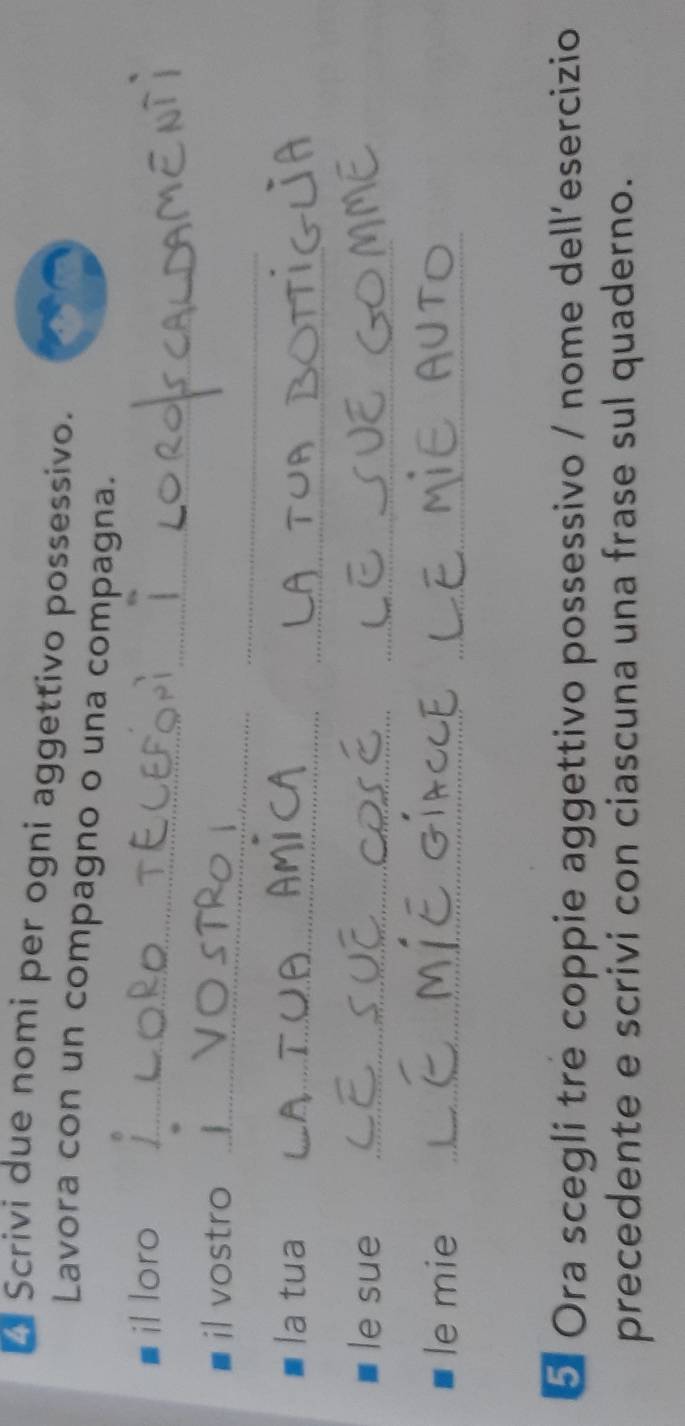 4 Scrivi due nomi per ogni aggettivo possessivo.
Lavora con un compagno o una compagna.
il loro i LORO TELEFONI i LORO SCALDAMENTI
il vostro i VOSTROI
la tua LA TUA AMICA LA TUA BOTTIGLIA
le sue LE SUE COSE LE SUE GOMME
le mie LE MIE GIACCE LE MIE AUTO
5 Ora scegli tre coppie aggettivo possessivo / nome dell'esercizio
precedente e scrivi con ciascuna una frase sul quaderno.